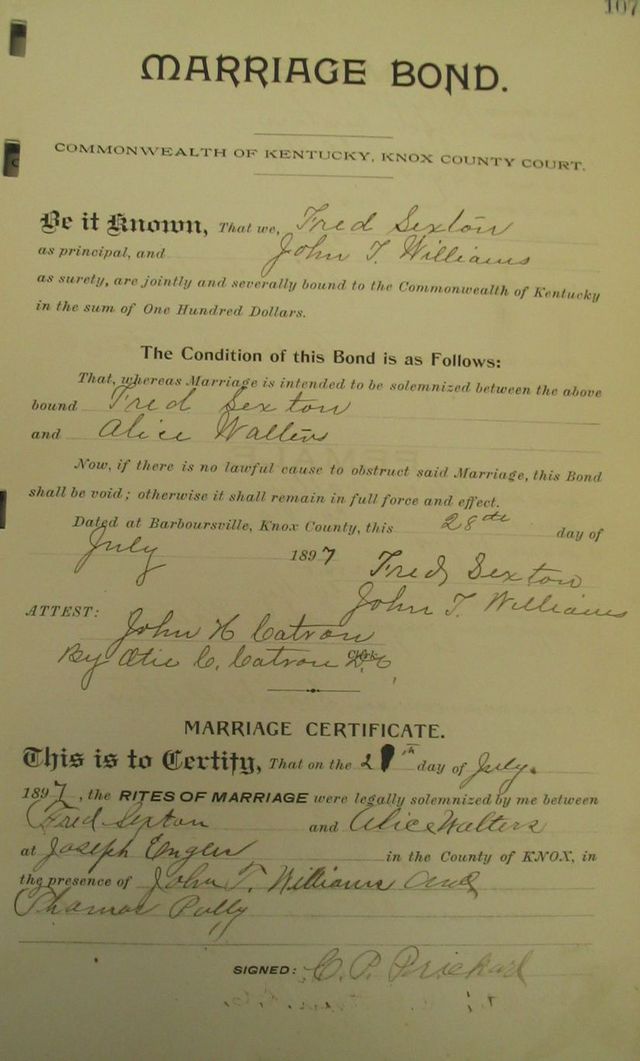 107
MARRIAGE BOND.
COMMONWEALTH OF KENTUCKY, KNOX COUNTY COURT.
Be it Known, That we, Fred Sexton
as principal, and John T. Williams
as surety, are jointly and severally bound to the Commonwealth of Kentucky
in the sum of One Hundred Dollars.
The Condition of this Bond is as Follows:
That, whereas Marriage is intended to be solemnized between the above
bound Fred Sexton
and Alice Walters
Now, if there is no lawful cause to obstruct said Marriage, this Bond
shall be void; otherwise it shall remain in full force and effect.
Dated at Barboursville, Knox County, this 28th day of
July 1897
Fred Sexton
John T. Williams
ATTEST:
John H Catron
By C. Catron D.C.
MARRIAGE CERTIFICATE.
This is to Certify, That on the day of July.
1897, the RITES OF MARRIAGE were legally solemnized by me between
Fred Sexton and Alice Walters
at Joseph in the County of KNOX, in
the presence of John T. Williams and
Thomas
SIGNED: C. P. Prichard